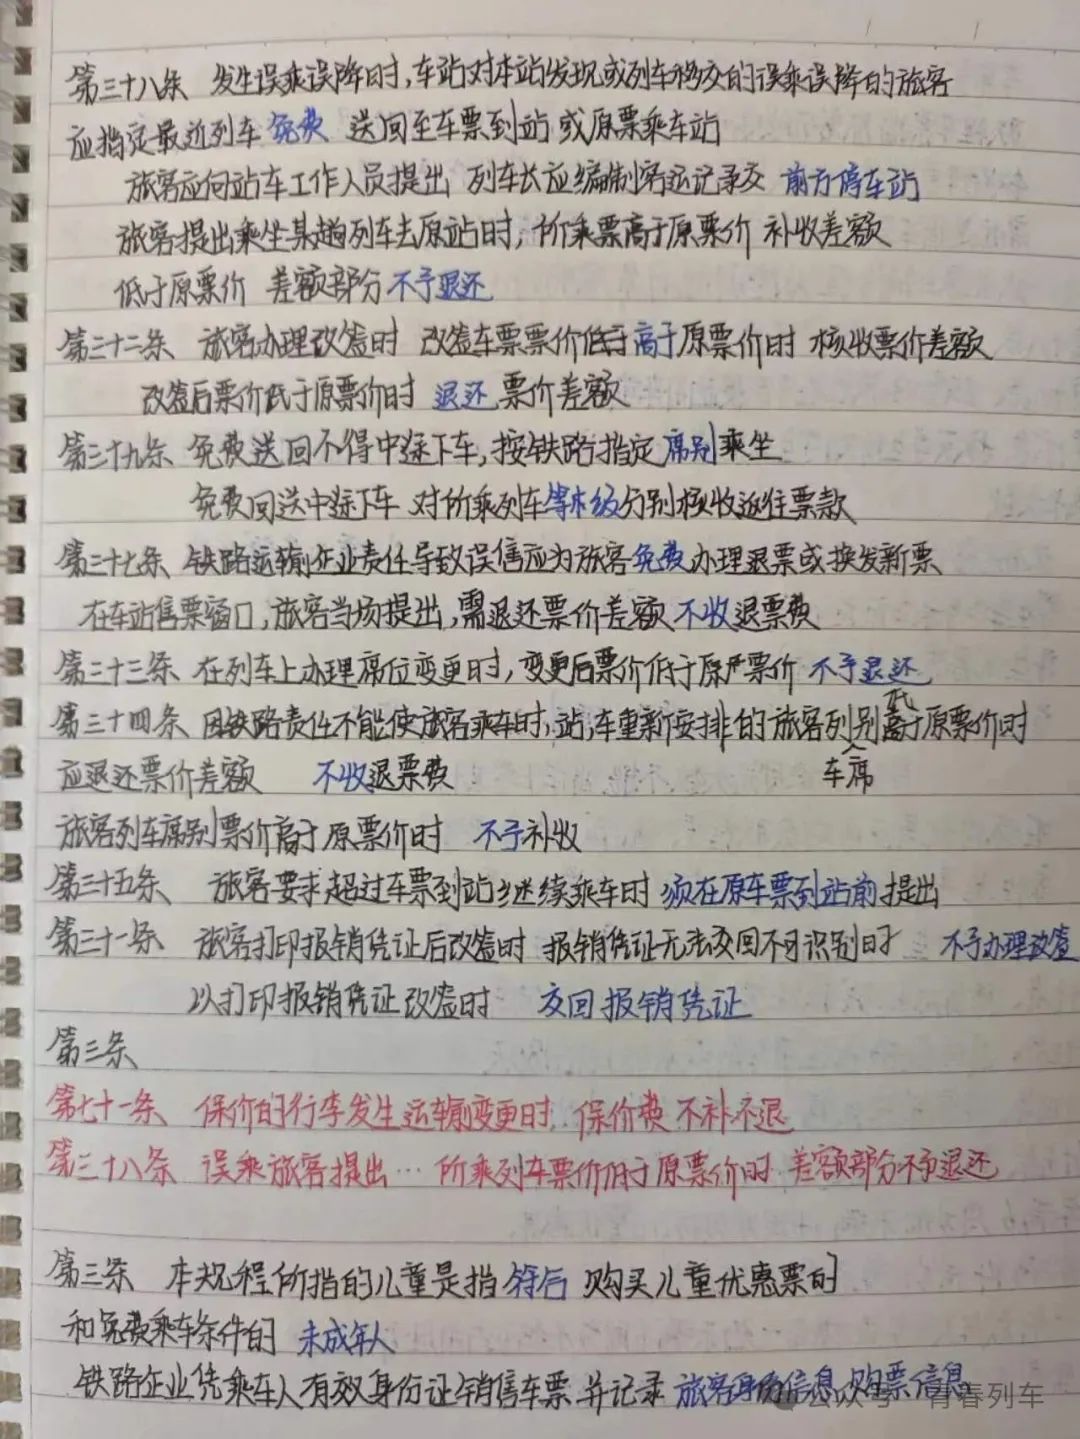 第三十八条 发生误乘误降时,车站对本站发现或列车移交的误乘误降的旅客
应指定最近列车 免费 送回至车票到站或原票乘车站
旅客应向站车工作人员提出 列车长应编制客运记录交 前方停车站
旅客提出乘坐某趟列车去原站时,所乘票高于原票价 补收差额
低于原票价 差额部分不予退还
第三十二条 旅客办理改签时 改签车票票价高于原票价时 核收票价差额
改签后票价低于原票价时 退还票价差额
第三十九条 免费送回不得中途下车,按铁路指定席别乘坐
免费回送中途下车 对所乘列车等级分别核收返往票款
第三十七条 铁路运输企业责任导致误售应为旅客免费办理退票或换发新票
在车站售票窗口,旅客当场提出,需退还票价差额 不收退票费
第三十三条 在列车上办理席位变更时,变更后票价低于原票价 不予退还
第三十四条 因铁路责任不能使旅客乘车时,站,车重新安排的旅客列车席别低于原票价时
应退还票价差额 不收退票费
旅客列车席别票价高于原票价时 不予补收
第三十五条 旅客要求超过车票到站继续乘车时 须在原车票到站前提出
第三十一条 旅客打印报销凭证后改签时 报销凭证无法交回不可识别时 不予办理改签
以打印报销凭证改签时 交回报销凭证
第三条
第七十一条 保价的行李发生运输变更时,保价费 不补不退
第三十八条 误乘旅客提出… 所乘列车票价低于原票价时 差额部分不予退还
第三条 本规程所指的儿童是指符合 购买儿童优惠票的
和免费乘车条件的 未成年人
铁路企业凭乘车人有效身份证销售车票 并记录 旅客身份信息 购票信息
公众号·青春列车